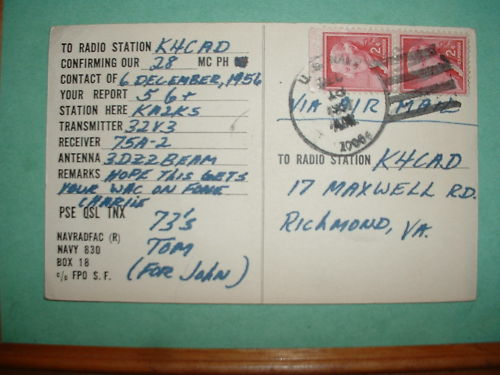 TO RADIO STATION K4CAD
CONFIRMING OUR 28 MC PH
CONTACT OF 6 DECEMBER, 1956
YOUR REPORT 5 6+
STATION HERE KA2KS
TRANSMITTER 32V3
RECEIVER 75A-2
ANTENNA 3DZZ BEAM
REMARKS HOPE THIS GETS
YOUR WAC ON FONE
CHARLIE
PSE QSL TNX
73's
TOM
(FOR JOHN)
NAVRADFAC (R)
NAVY 830
BOX 18
c/o FPO S. F.
U. S. NAVY
AM
2¢ 2¢
VIA AIR MAIL
TO RADIO STATION K4CAD
17 MAXWELL RD.
RICHMOND, VA.